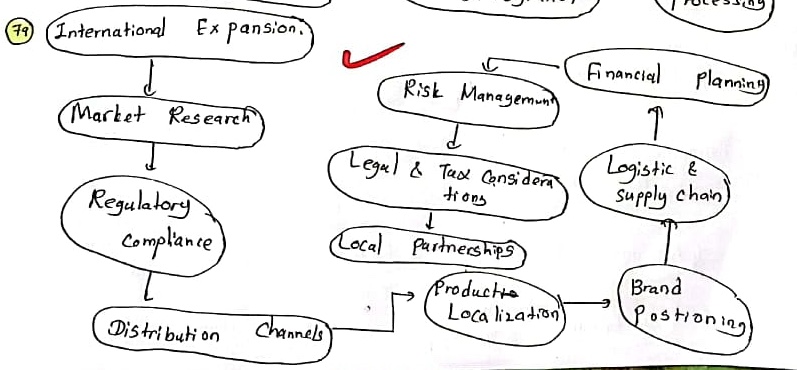 Processing
79 International Expansion.
Market Research
Regulatory
Compliance
Distribution Channels
Product
Localization
Brand
Postioning
Logistic &
supply chain
Financial planning
Risk Management
Legal & Tax Considera
tions
Local Partnerships